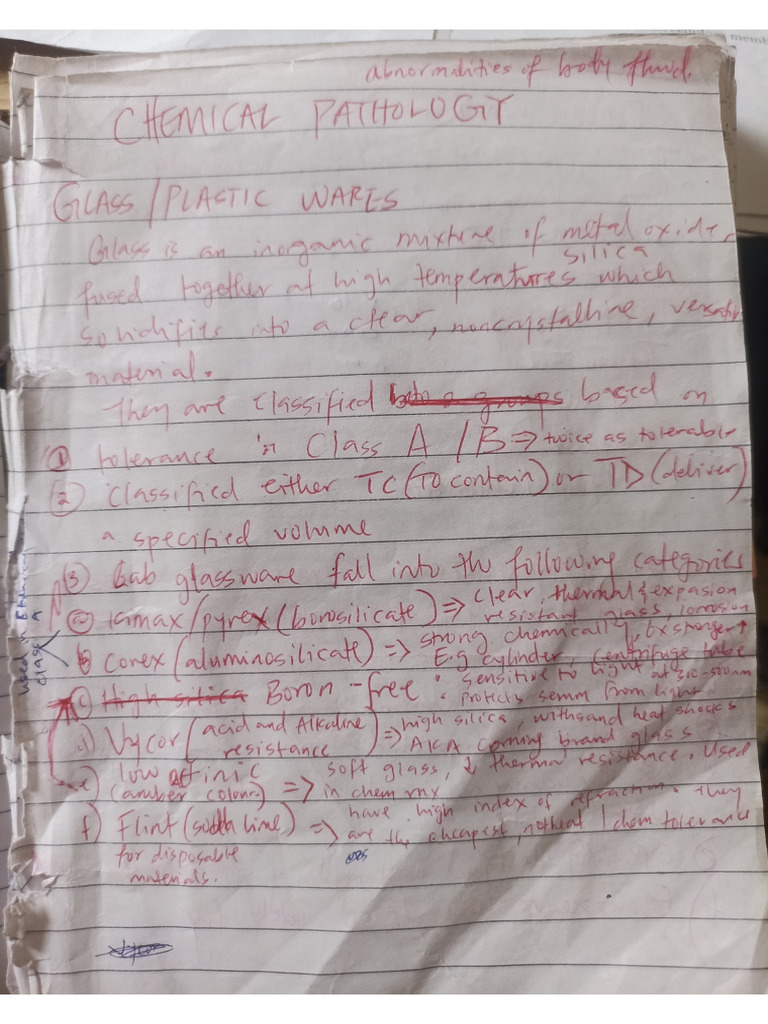 abnormalities of body fluid.
CHEMICAL PATHOLOGY
GLASS/PLASTIC WARES
Glass is an inorganic mixture of metal oxide,
silica
fused together at high temperatures which
solidifies into a clear, noncrystalline, versatile
material.
They are classified based on
① tolerance in Class A / B => twice as tolerable
② Classified either TC (To contain) or TD (deliver)
a specified volume
③ Lab glassware fall into the following categories
a) Kimax/pyrex (borosilicate) => Clear, thermal & expasion
resistant glass corrosion
b) Corex (aluminosilicate) => strong chemically, 6x stronger ↑
E.g cylinder, centrifuge tube
c) High silica Boron-free : Sensitive to light at 300-500nm
: Protects semm from light
d) Vycor (acid and Alkaline => high silica, withsand heat shocks
resistance) AKA corning brand glass
e) low actinic => soft glass, ↓ thermal resistance. Used
(amber colour) in chem rnx
f) Flint (soda lime) => have high index of refraction. They
are the cheapest, not heat / chem tolerance
for disposable
materials.
used in
class A